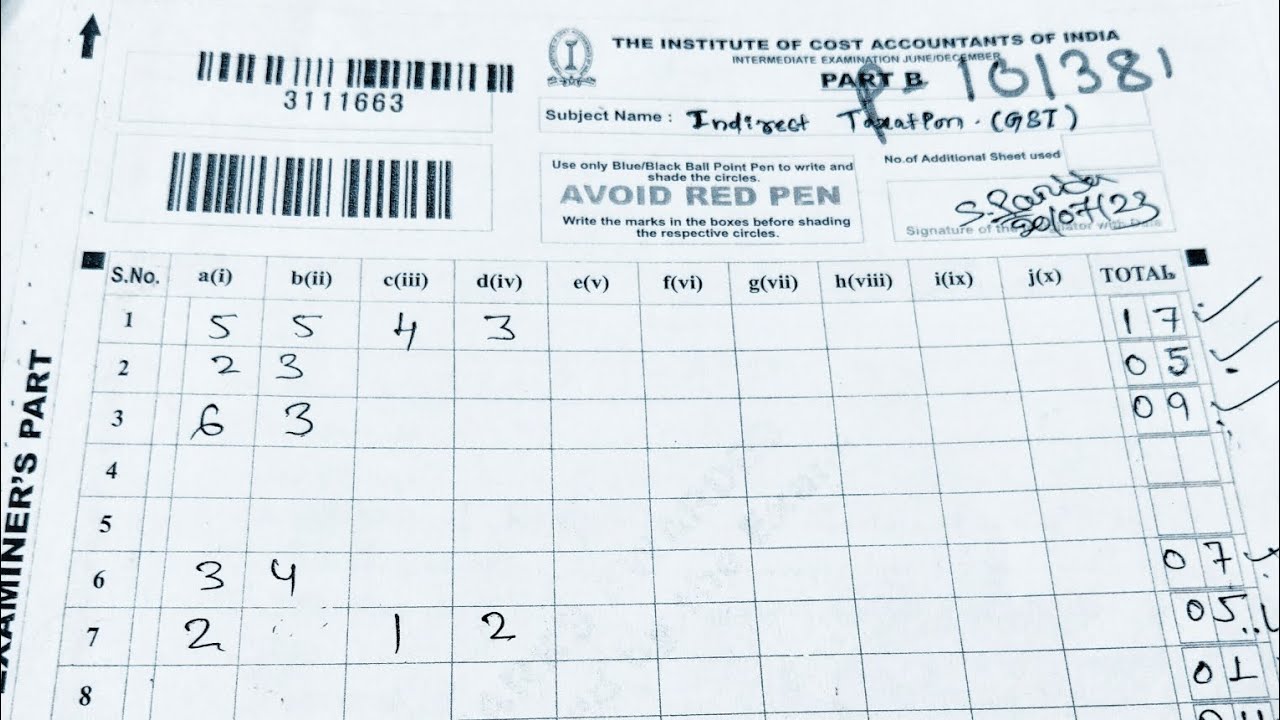 THE INSTITUTE OF COST ACCOUNTANTS OF INDIA
INTERMEDIATE EXAMINATION JUNE/DECEMBER
PART B
P- 101381
3111663
Subject Name : Indirect Taxation. (GST)
Use only Blue/Black Ball Point Pen to write and
shade the circles.
AVOID RED PEN
Write the marks in the boxes before shading
the respective circles.
No.of Additional Sheet used
20/07/23
Signature of the with Date
EXAMINER'S PART
S.No. a(i) b(ii) c(iii) d(iv) e(v) f(vi) g(vii) h(viii) i(ix) j(x) TOTAL
1 5 5 4 3 17
2 2 3 05
3 6 3 09
4
5
6 3 4 07
7 2 1 2 05
8 01